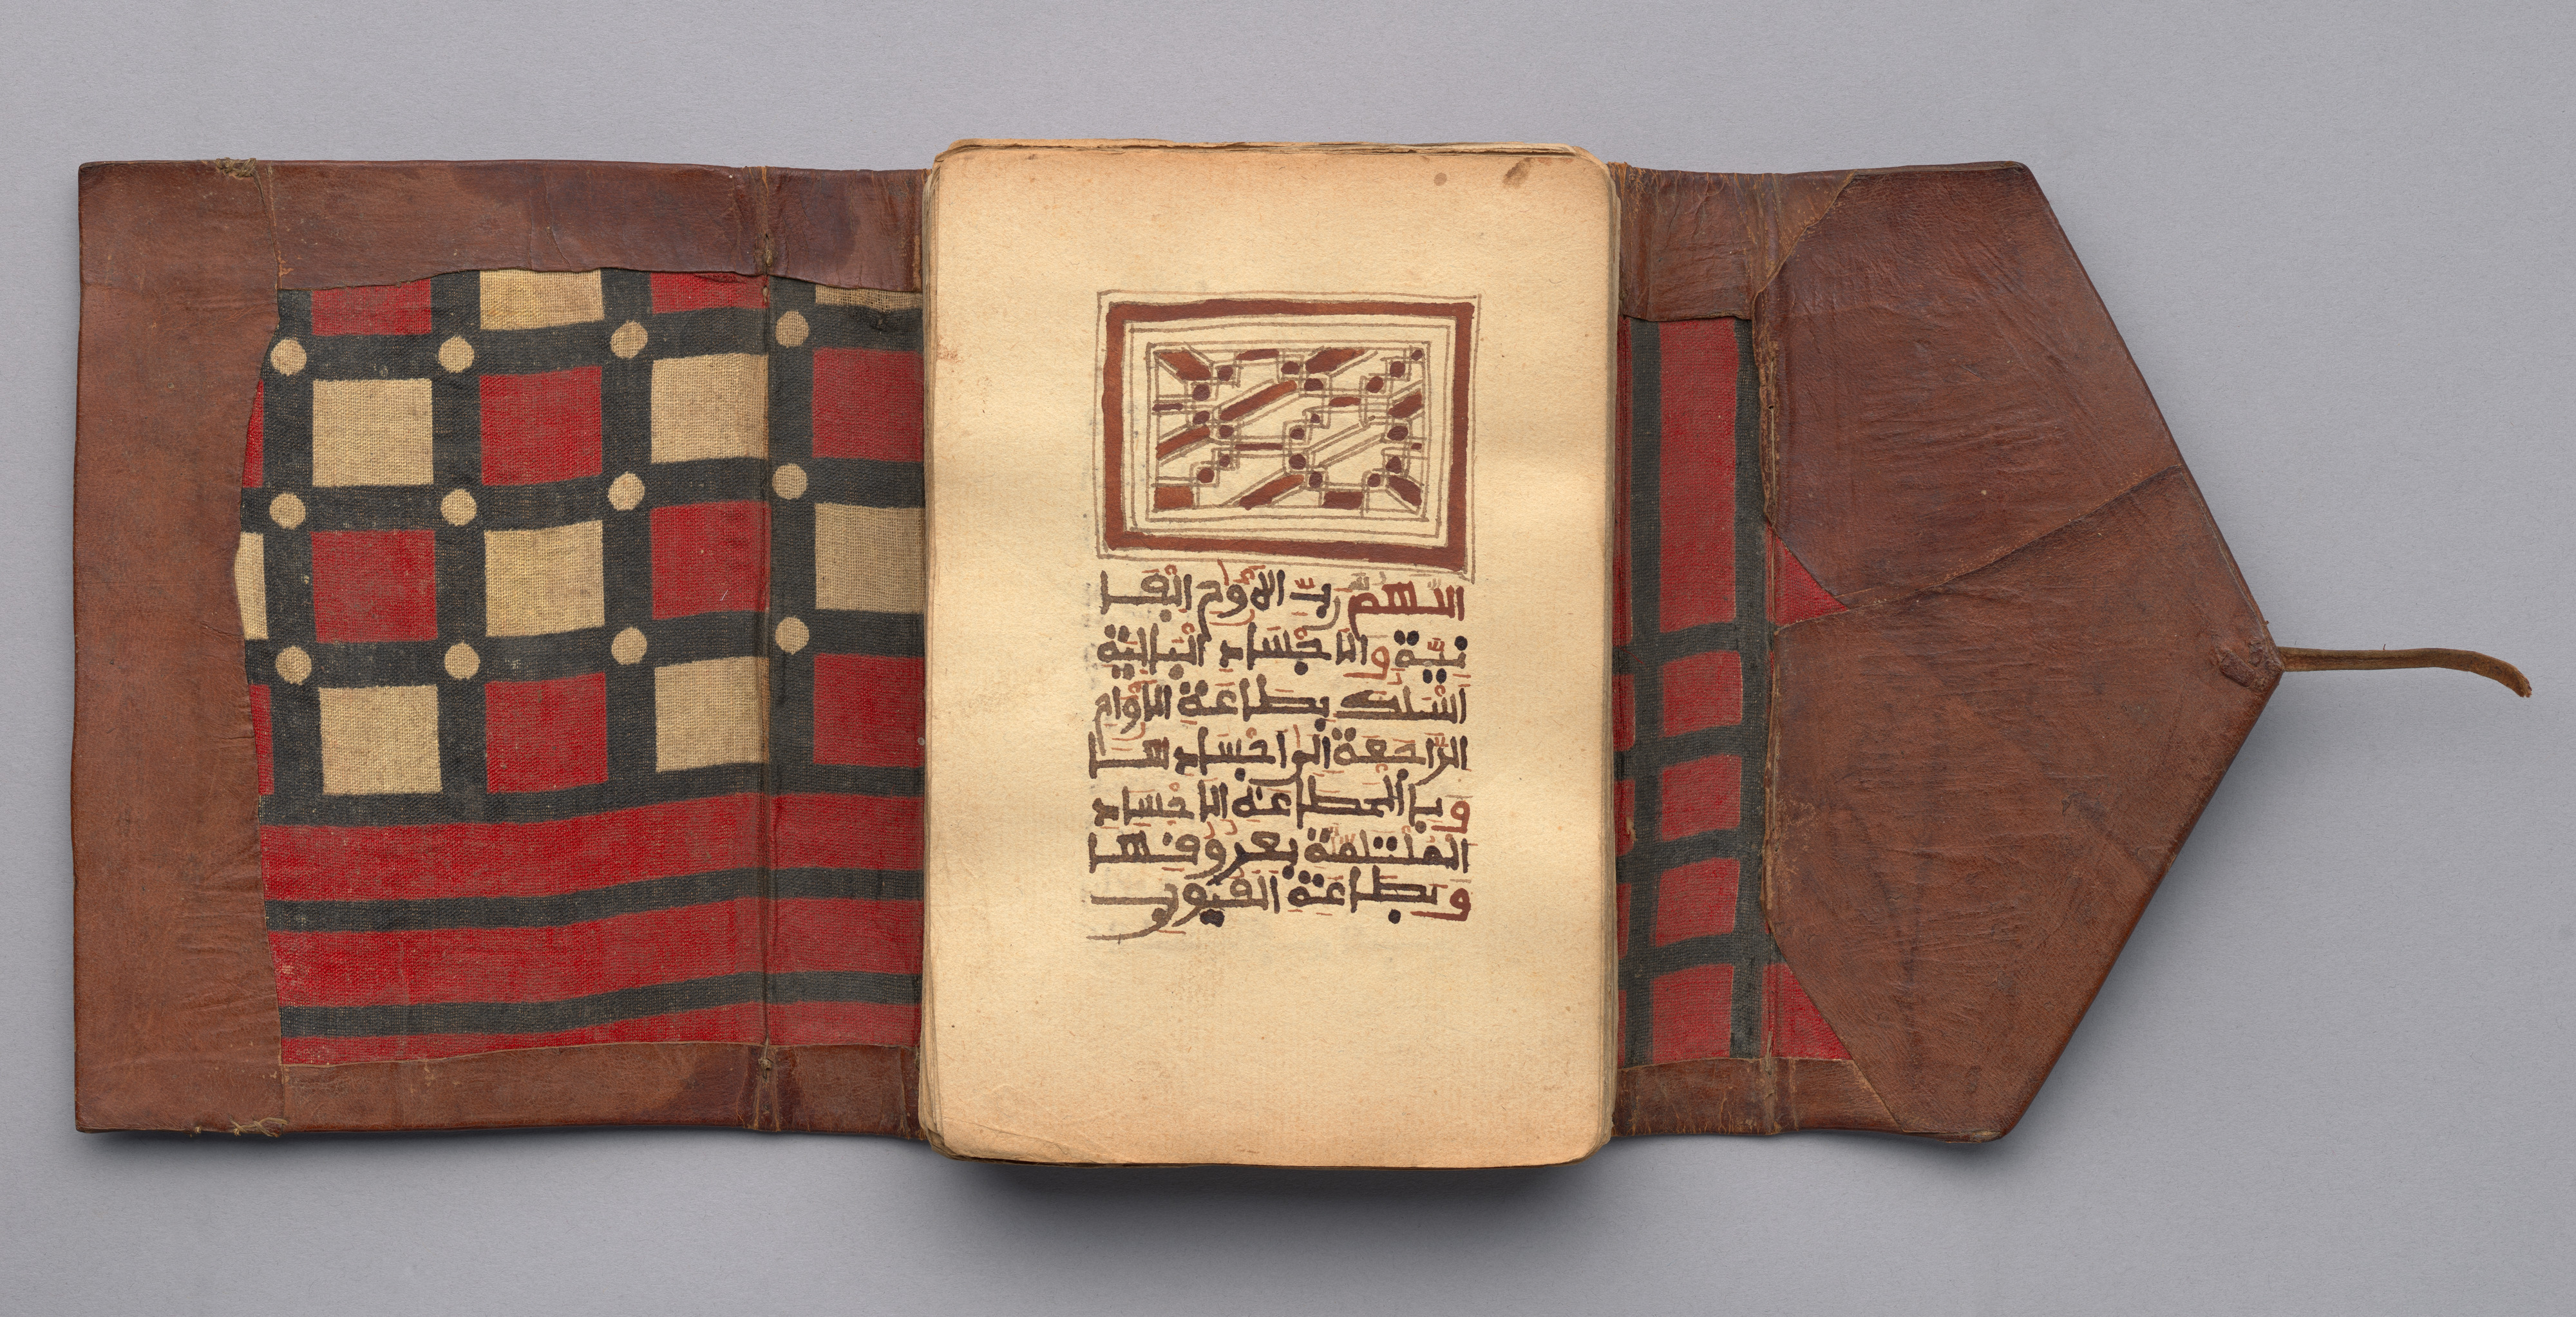 اللهم رب الاروح الفا
نية والاجساد البالية
اسئلك بطاعة الارواح
الراجعة الى اجسادها
وبالطاعة الاجساد
الملتئمة بعروفها
وبطاعة القبور